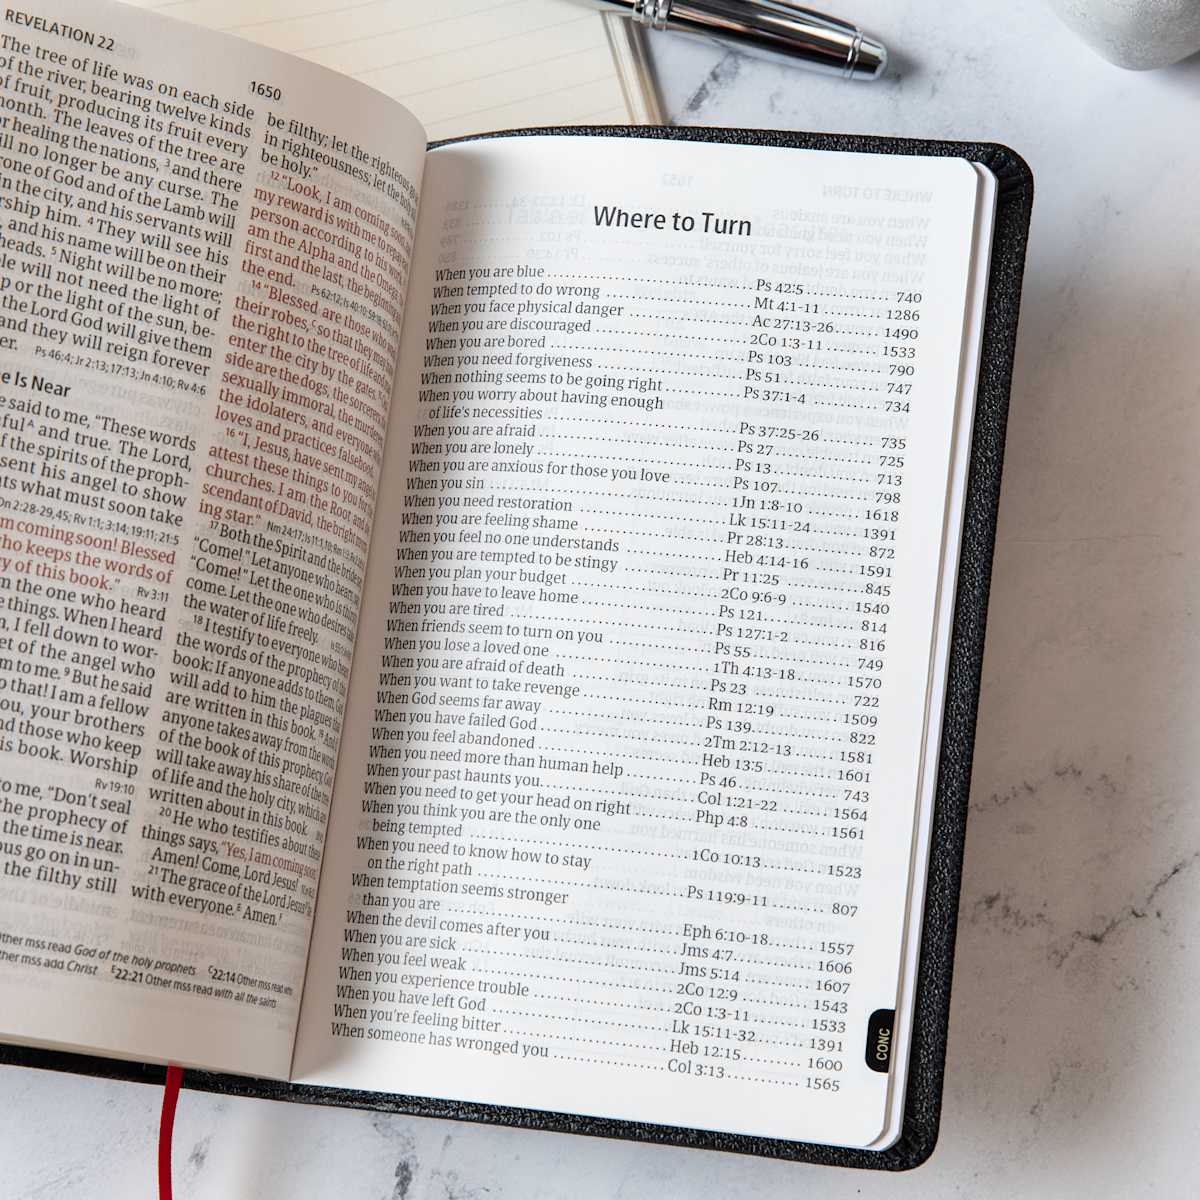 REVELATION 22
1650
The tree of life was on each side
of the river, bearing twelve kinds
of fruit, producing its fruit every
month. The leaves of the tree are
healing the nations, ³ and there
no longer be any curse. The
one of God and of the Lamb will
in the city, and his servants will
him. ⁴ They will see his
and his name will be on their
heads. ⁵ Night will be no more;
will not need the light of
or the light of the sun, be-
the Lord God will give them
and they will reign forever
Ps 46:4; Jr 2:13; 17:13; Jn 4:10; Rv 4:6
Is Near
said to me, “These words
and true. The Lord,
the spirits of the proph-
sent his angel to show
what must soon take
2:28-29,45; Rv 1:1; 3:14; 19:11; 21:5
coming soon! Blessed
who keeps the words of
of this book.” Rv 3:11
the one who heard
things. When I heard
I fell down to wor-
of the angel who
to me. ⁹ But he said
that! I am a fellow
your brothers
and those who keep
book. Worship
Rv 19:10
to me, “Don’t seal
the prophecy of
the time is near.
go on in un-
the filthy still
be filthy; let the righteous
in righteousness; let the
be holy.”
¹² “Look, I am coming soon,
my reward is with me to repay
person according to his work.
am the Alpha and the Omega,
first and the last, the beginning
the end. Ps 62:12; Is 40:10;
¹⁴ “Blessed are those who
their robes, so that they may
the right to the tree of life and
enter the city by the gates.
side are the dogs, the sorcerers,
sexually immoral, the murderers,
the idolaters, and everyone who
loves and practices falsehood.
¹⁶ “I, Jesus, have sent my angel
attest these things to you for the
churches. I am the Root and
scendant of David, the bright
ing star.” Nm 24:17; Is 11:1,10;
¹⁷ Both the Spirit and the bride
“Come!” Let anyone who hears,
“Come!” Let the one who is thirsty
come. Let the one who desires take
the water of life freely.
¹⁸ I testify to everyone who hears
the words of the prophecy of
book: If anyone adds to them, God
will add to him the plagues that
are written in this book. ¹⁹ And
anyone takes away from the words
of the book of this prophecy, God
will take away his share of the tree
of life and the holy city, which are
written about in this book.
²⁰ He who testifies about these
things says, “Yes, I am coming soon.”
Amen! Come, Lord Jesus!
²¹ The grace of the Lord Jesus
with everyone. Amen.
Other mss read God of the holy prophets 22:14 Other mss read
Other mss add Christ 22:21 Other mss read with all the saints
Where to Turn
When you are blue Ps 42:5 740
When tempted to do wrong Mt 4:1-11 1286
When you face physical danger Ac 27:13-26 1490
When you are discouraged 2Co 1:3-11 1533
When you are bored Ps 103 790
When you need forgiveness Ps 51 747
When nothing seems to be going right Ps 37:1-4 734
When you worry about having enough
of life’s necessities Ps 37:25-26 735
When you are afraid Ps 27 725
When you are lonely Ps 13 713
When you are anxious for those you love Ps 107 798
When you sin 1Jn 1:8-10 1618
When you need restoration Lk 15:11-24 1391
When you are feeling shame Pr 28:13 872
When you feel no one understands Heb 4:14-16 1591
When you are tempted to be stingy Pr 11:25 845
When you plan your budget 2Co 9:6-9 1540
When you have to leave home Ps 121 814
When you are tired Ps 127:1-2 816
When friends seem to turn on you Ps 55 749
When you lose a loved one 1Th 4:13-18 1570
When you are afraid of death Ps 23 722
When you want to take revenge Rm 12:19 1509
When God seems far away Ps 139 822
When you have failed God 2Tm 2:12-13 1581
When you feel abandoned Heb 13:5 1601
When you need more than human help Ps 46 743
When your past haunts you Col 1:21-22 1564
When you need to get your head on right Php 4:8 1561
When you think you are the only one
being tempted 1Co 10:13 1523
When you need to know how to stay
on the right path Ps 119:9-11 807
When temptation seems stronger
than you are Eph 6:10-18 1557
When the devil comes after you Jms 4:7 1606
When you are sick Jms 5:14 1607
When you feel weak 2Co 12:9 1543
When you experience trouble 2Co 1:3-11 1533
When you have left God Lk 15:11-32 1391
When you’re feeling bitter Heb 12:15 1600
When someone has wronged you Col 3:13 1565
CONC